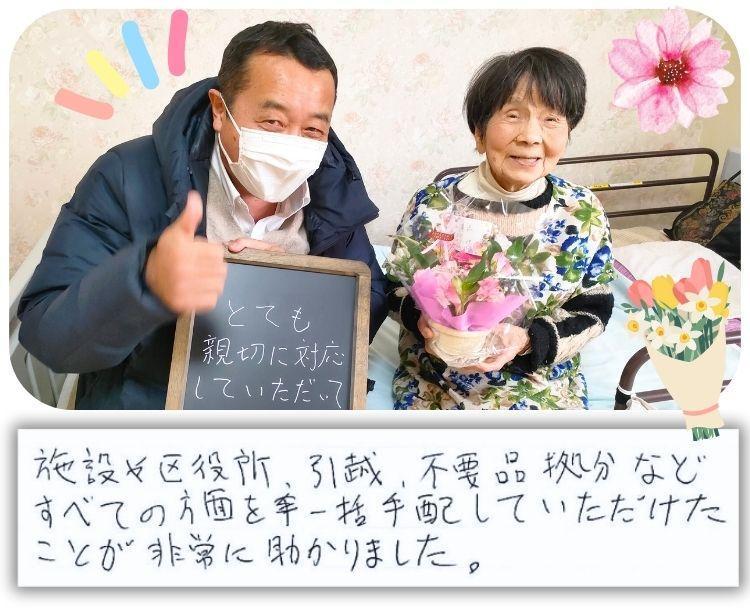 とても
親切に対応
していただいて
施設や区役所、引越、不要品拠分など
すべての方面を一括手配していただけた
ことが非常に助かりました。